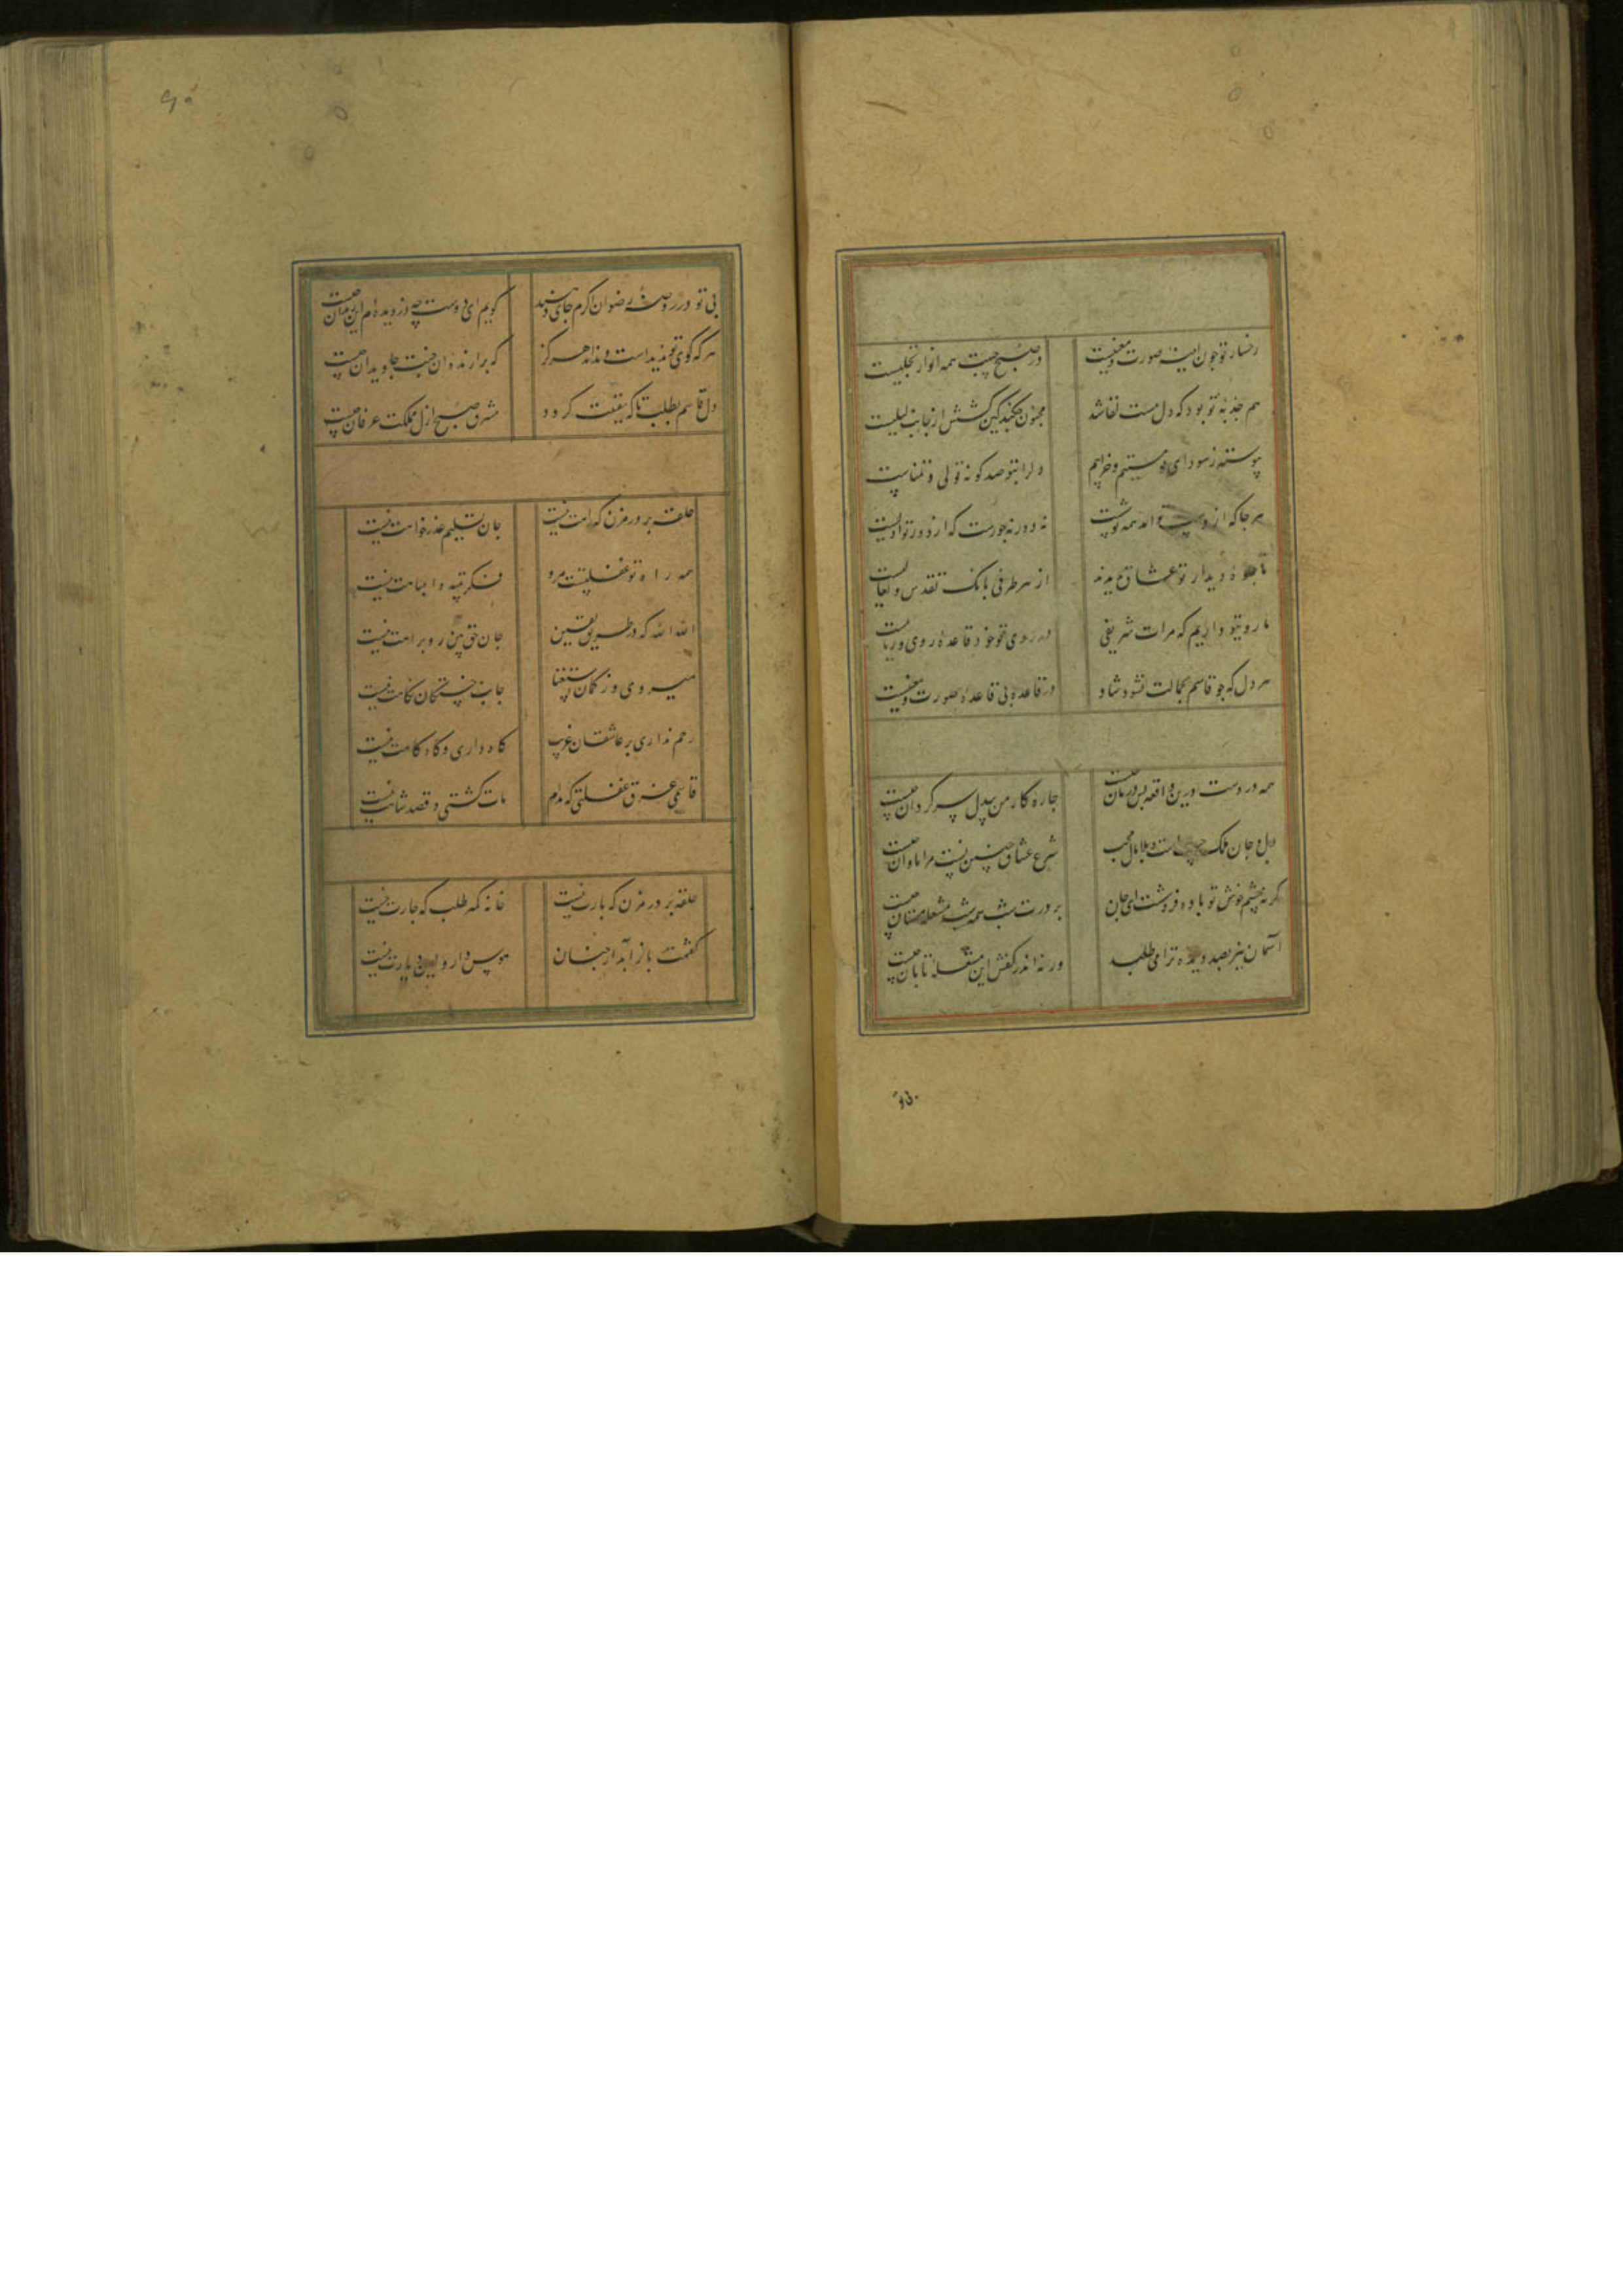 رخسار تو چون آینه صورت و معنیست
در صبح جبینت همه انوار تجلیست
هم جذبه تو بود که دل مست لقا شد
مجنون چکند کین کشش از جانب لیلیست
پیوسته ز سودای تو مستیم و خرابیم
دل را بتو صد کونه تولی و تمناست
هر جا که از دست همه توست
نه دور نه جورست که از دور تو اولیست
تا جلوه دیدار تو عشاق بدیدند
از هر طرفی بانک تقدس و تعالیست
ما رو بتو داریم که مرات شریفی
در روی تو خود قاعده روی و ریا نیست
هر دل که چو قاسم بجمالت نشود شاد
در قاعده بی قاعده صورت و معنیست
همه دردست درین واقعه پس درمان چیست
چاره کار من بیدل سر کردان چیست
دل و جان ملک حبیب است و بلا مال محب
شرع عشاق چنین نیست مرا تاوان چیست
کر نه چشم خوش تو باده فروشست ای جان
بر درت شب همه شب مشعله مستان چیست
آسمان نیز بصد دیده ترا می طلبد
ورنه اندر کفش این مشعله تابان چیست
۹۰
بی تو در روضه رضوان اکرم جای دهند
کویم ای دوست چه دزدیده ام این زندان چیست
هر که کوی تو ندیداست و نداند هرکز
که برازنده آن جنت جاویدان چیست
دل قاسم بطلب تا که یقینت کردد
مشرق صبح ازل مملکت عرفان چیست
حلقه بر در مزن که راهت نیست
جان تسلیم عذرخواهت نیست
همه راه تو غفلتست مرو
فکر تیه و انتباهت نیست
الله الله که در طریق یقین
جان حق بین رو براهت نیست
میروی وز کمان استغنا
جانب خستکان نکاهت نیست
رحم نداری بر عاشقان غریب
کاه داری و کاه کاهت نیست
قاسمی غرق غفلتی که مدام
مات کشتی و قصد شاهت نیست
حلقه بر در مزن که بارت نیست
خانه کم طلب که جارت نیست
کفتمت باز آید از خسان
هوس دار و این دیارت نیست